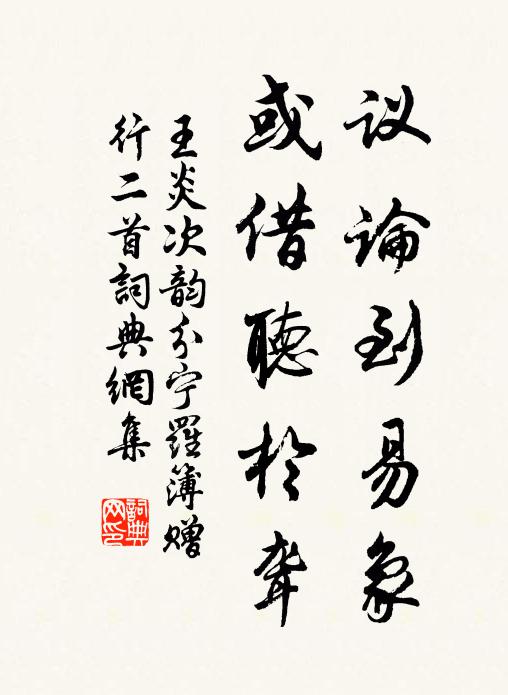 议論到易象
或借聽於聋
王炎次韵分宁羅簿赠
行二首詞典網集
詞典
网印